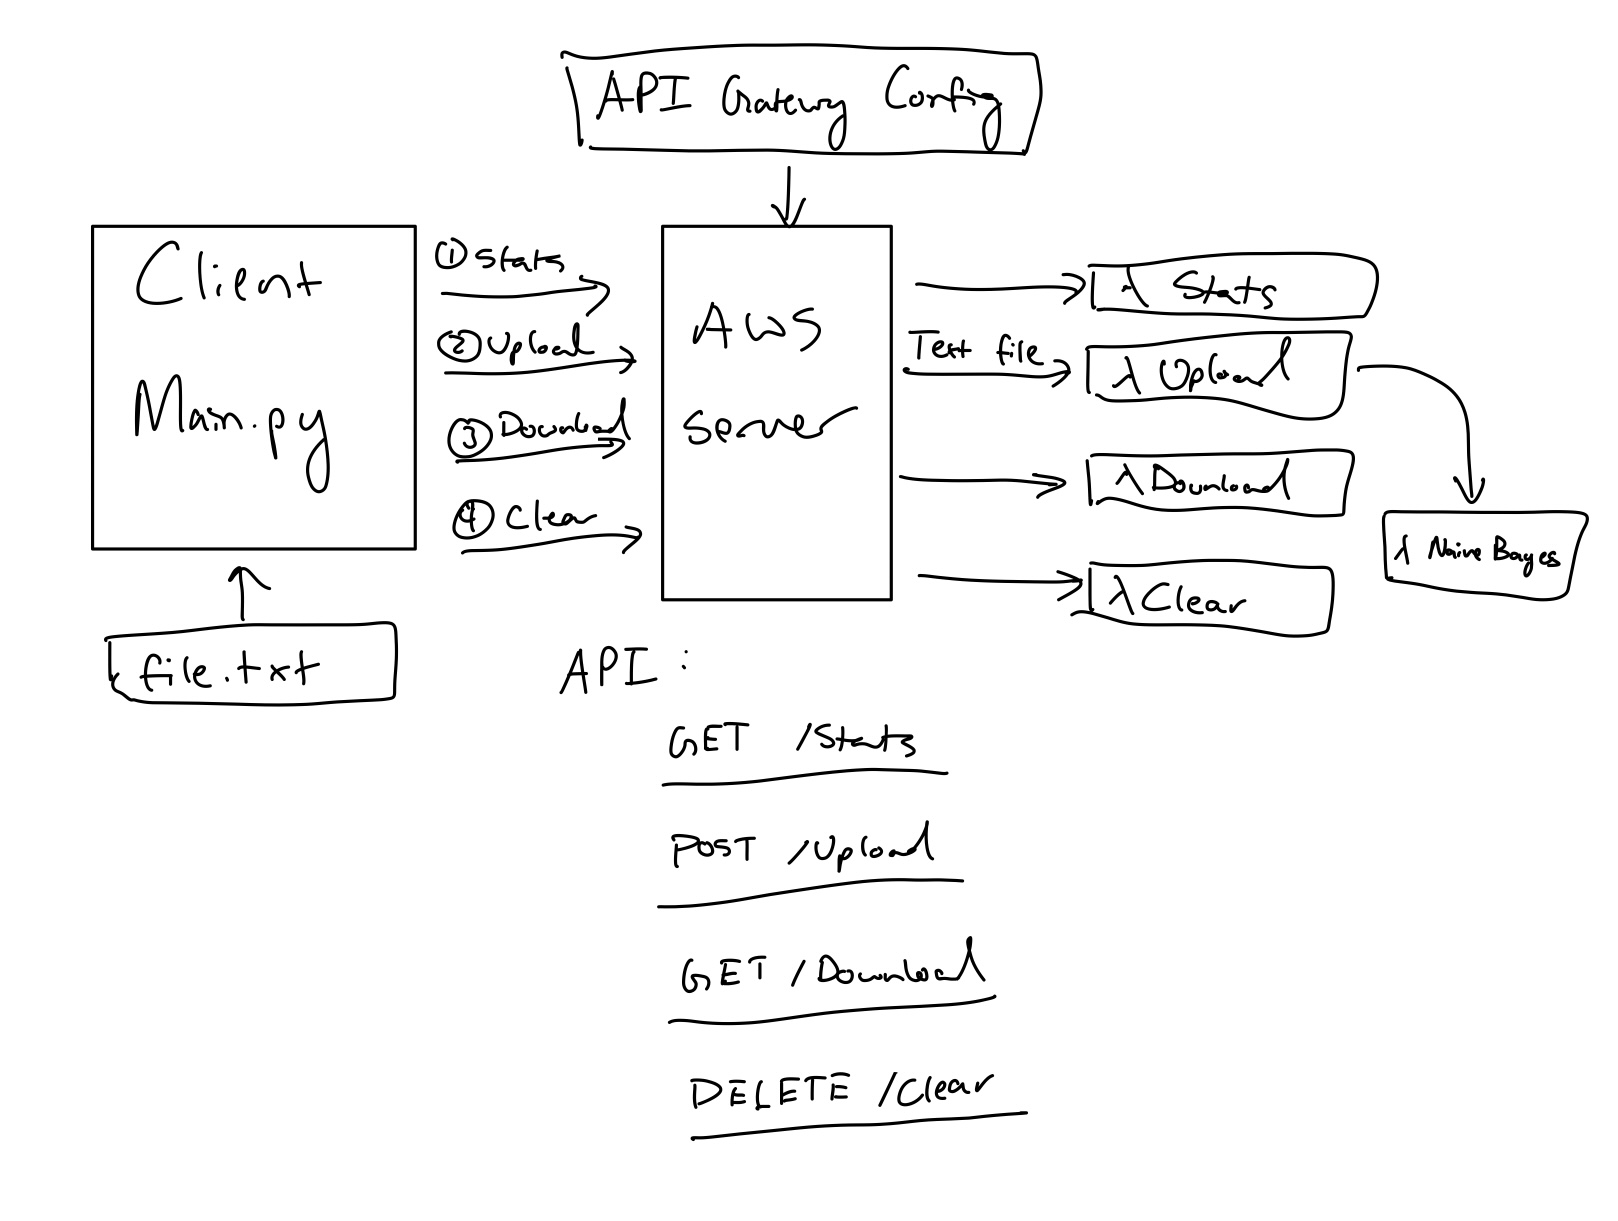 API Gateway Config
Client
Main.py
① Stats
② Upload
③ Download
④ Clear
AWS
Server
Text file
λ Stats
λ Upload
λ Download
λ Clear
λ Naive Bayes
file.txt
API :
GET /Stats
POST /Upload
GET /Download
DELETE /Clear